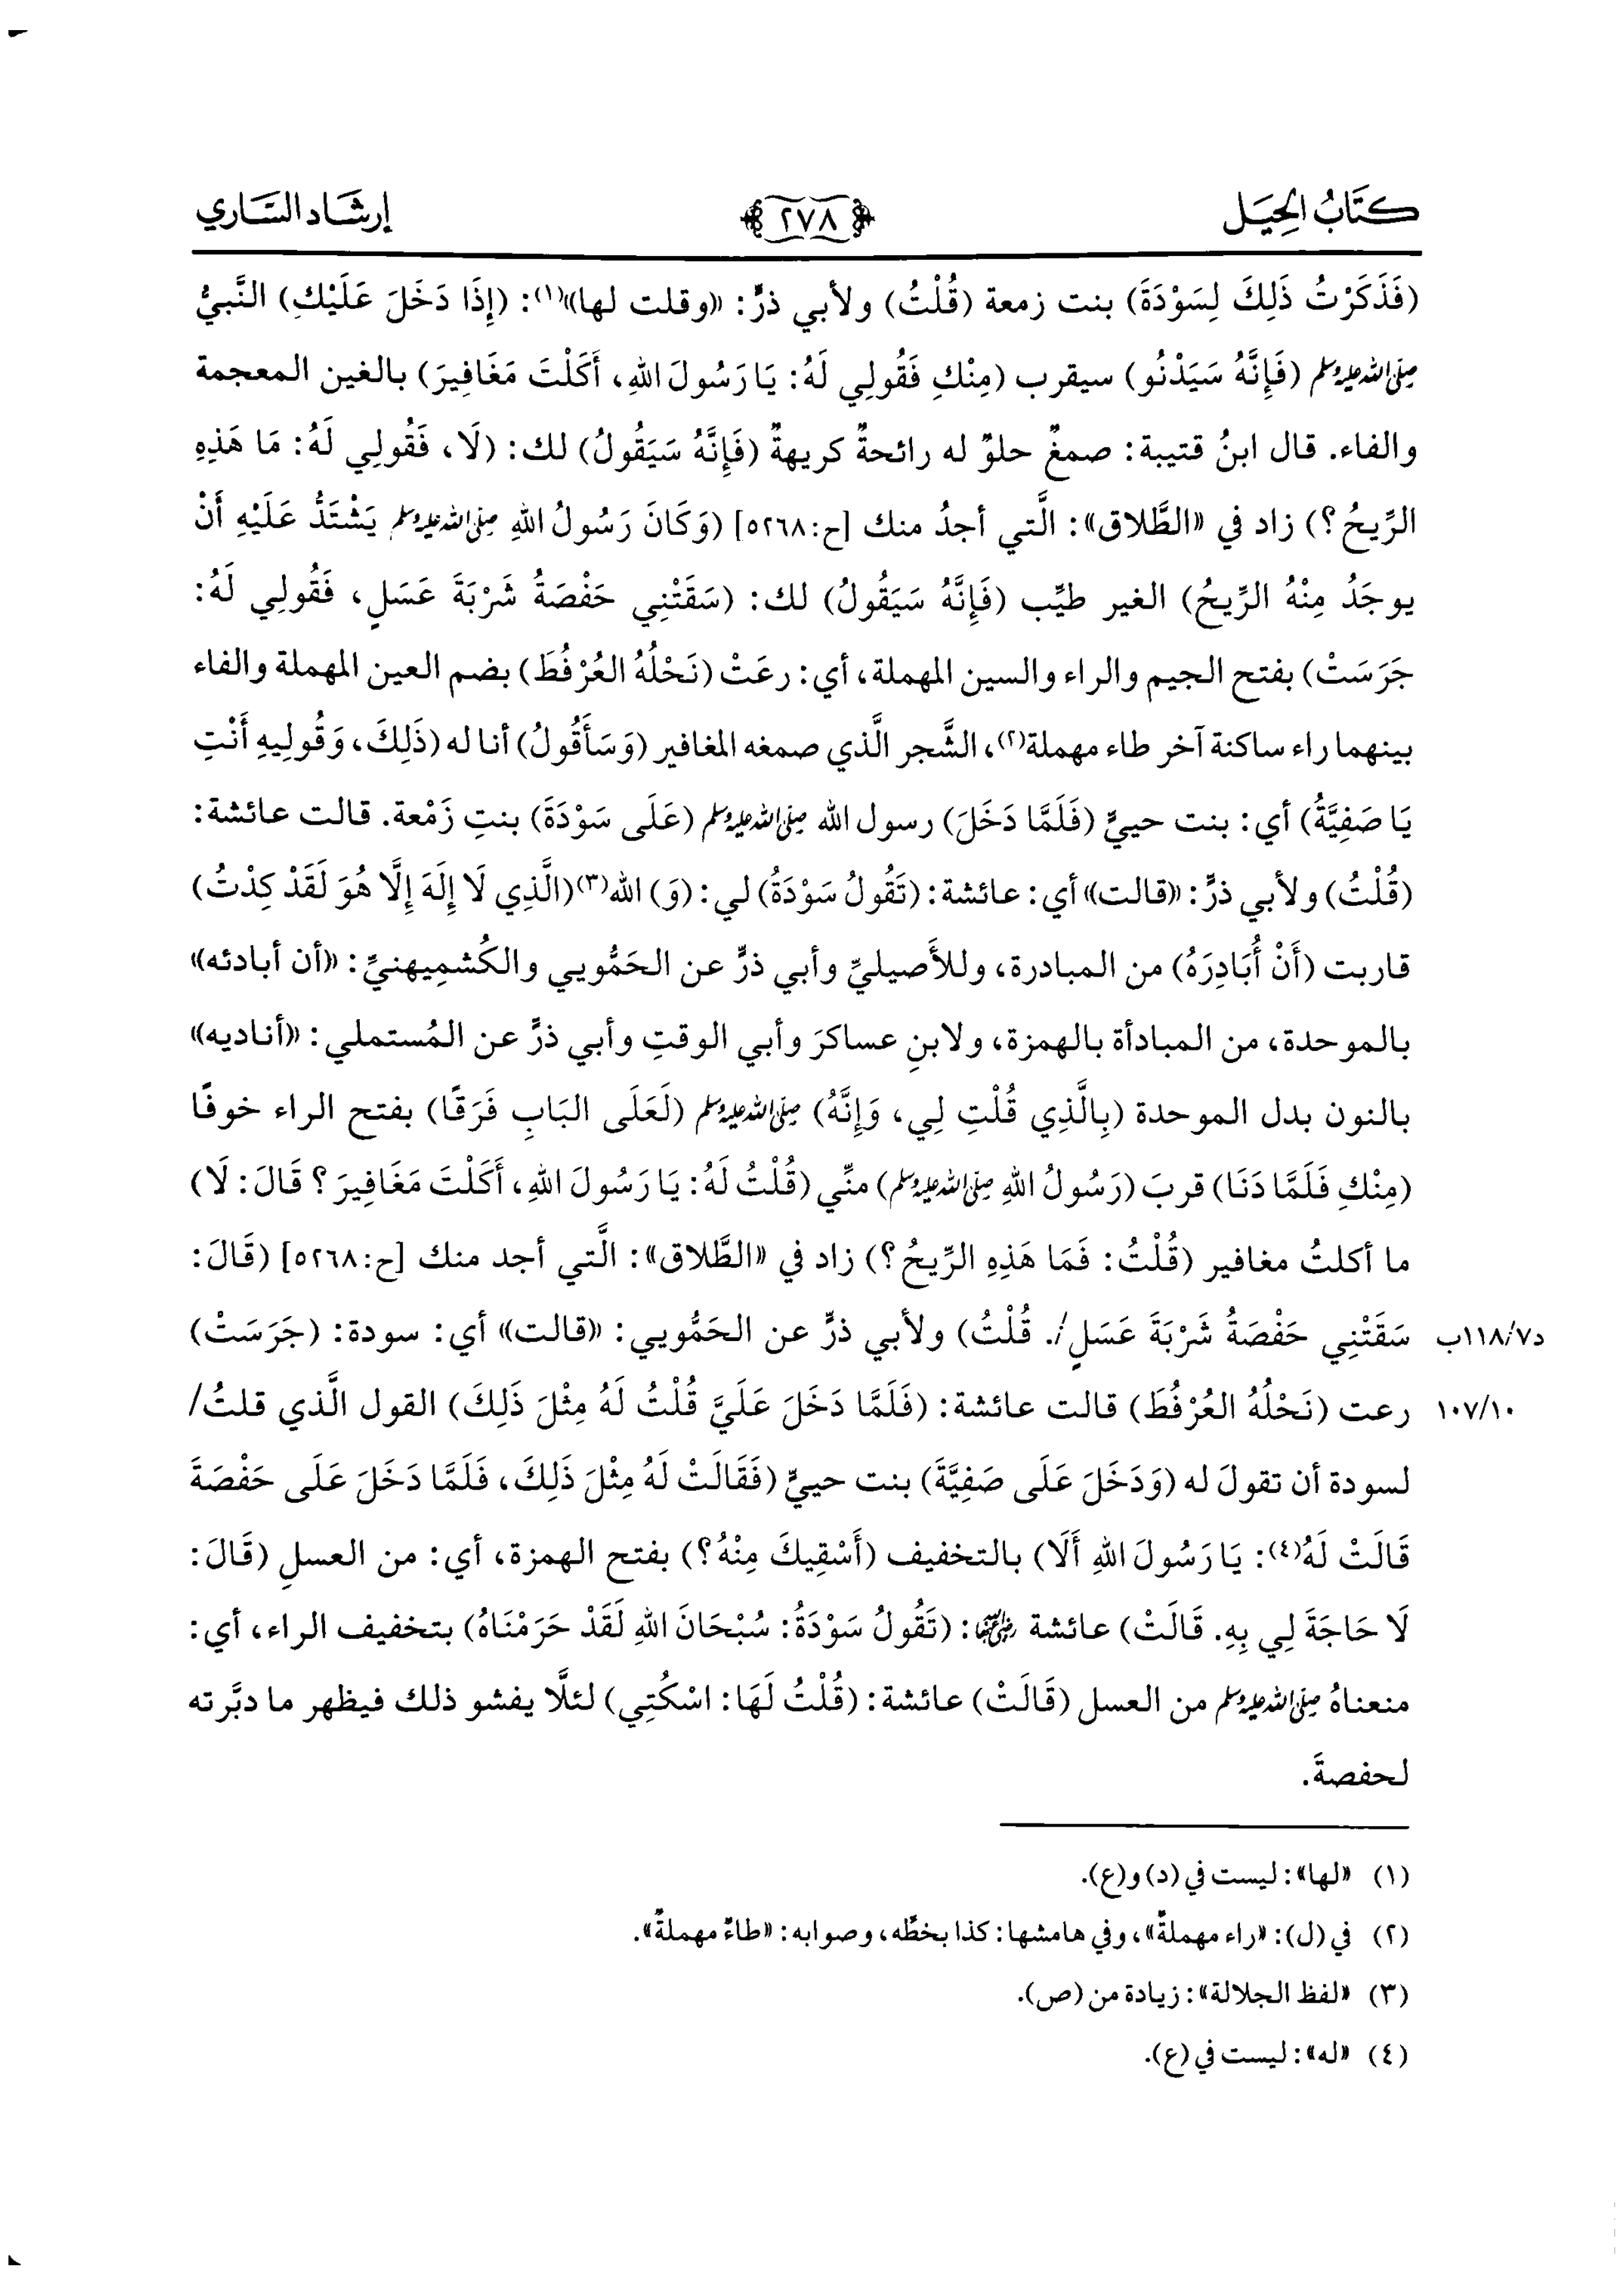 كتاب الحيل ٢٧٨ إرشاد الساري
(فَذَكَرْتُ ذَلِكَ لِسَوْدَةَ) بنت زمعة (قُلْتُ) ولأبي ذرٍّ: «وقلت لها»(١): (إِذَا دَخَلَ عَلَيْكِ) النَّبيُّ
صلى الله عليه وسلم (فَإِنَّهُ سَيَدْنُو) سيقرب (مِنْكِ فَقُولِي لَهُ: يَا رَسُولَ اللهِ، أَكَلْتَ مَغَافِيرَ) بالغين المعجمة
والفاء. قال ابنُ قتيبة: صمغٌ حلوٌ له رائحةٌ كريهةٌ (فَإِنَّهُ سَيَقُولُ) لك: (لَا، فَقُولِي لَهُ: مَا هَذِهِ
الرِّيحُ؟) زاد في «الطَّلاق»: الَّتي أجدُ منك [ح:٥٢٦٨] (وَكَانَ رَسُولُ اللهِ صلى الله عليه وسلم يَشْتَدُّ عَلَيْهِ أَنْ
يوجَدُ مِنْهُ الرِّيحُ) الغير طيِّب (فَإِنَّهُ سَيَقُولُ) لك: (سَقَتْنِي حَفْصَةُ شَرْبَةَ عَسَلٍ، فَقُولِي لَهُ:
جَرَسَتْ) بفتح الجيم والراء والسين المهملة، أي: رعَتْ (نَحْلُهُ العُرْفُطَ) بضم العين المهملة والفاء
بينهما راء ساكنة آخر طاء مهملة(٢)، الشَّجر الَّذي صمغه المغافير (وَسَأَقُولُ) أنا له (ذَلِكَ، وَقُولِيهِ أَنْتِ
يَا صَفِيَّةُ) أي: بنت حييٍّ (فَلَمَّا دَخَلَ) رسول الله صلى الله عليه وسلم (عَلَى سَوْدَةَ) بنتِ زَمْعة. قالت عائشة:
(قُلْتُ) ولأبي ذرٍّ: «قالت» أي: عائشة: (تَقُولُ سَوْدَةُ) لي: (وَ) الله(٣) (الَّذِي لَا إِلَهَ إِلَّا هُوَ لَقَدْ كِدْتُ)
قاربت (أَنْ أُبَادِرَهُ) من المبادرة، وللأَصيليِّ وأبي ذرٍّ عن الحَمُّويي والكُشمِيهنيِّ: «أن أبادئه»
بالموحدة، من المبادأة بالهمزة، ولابنِ عساكرَ وأبي الوقتِ وأبي ذرٍّ عن المُستملي: «أناديه»
بالنون بدل الموحدة (بِالَّذِي قُلْتِ لِي، وَإِنَّهُ) صلى الله عليه وسلم (لَعَلَى البَابِ فَرَقًا) بفتح الراء خوفًا
(مِنْكِ فَلَمَّا دَنَا) قربَ (رَسُولُ اللهِ صلى الله عليه وسلم) منِّي (قُلْتُ لَهُ: يَا رَسُولَ اللهِ، أَكَلْتَ مَغَافِيرَ؟ قَالَ: لَا)
ما أكلتُ مغافير (قُلْتُ: فَمَا هَذِهِ الرِّيحُ؟) زاد في «الطَّلاق»: الَّتي أجد منك [ح:٥٢٦٨] (قَالَ:
سَقَتْنِي حَفْصَةُ شَرْبَةَ عَسَلٍ/. قُلْتُ) ولأبي ذرٍّ عن الحَمُّويي: «قالت» أي: سودة: (جَرَسَتْ) د٧/١١٨ب
رعت (نَحْلُهُ العُرْفُطَ) قالت عائشة: (فَلَمَّا دَخَلَ عَلَيَّ قُلْتُ لَهُ مِثْلَ ذَلِكَ) القول الَّذي قلتُ/ ١٠٧/١٠
لسودة أن تقولَ له (وَدَخَلَ عَلَى صَفِيَّةَ) بنت حييٍّ (فَقَالَتْ لَهُ مِثْلَ ذَلِكَ، فَلَمَّا دَخَلَ عَلَى حَفْصَةَ
قَالَتْ لَهُ(٤): يَا رَسُولَ اللهِ أَلَا) بالتخفيف (أَسْقِيكَ مِنْهُ؟) بفتح الهمزة، أي: من العسلِ (قَالَ:
لَا حَاجَةَ لِي بِهِ. قَالَتْ) عائشة رضي الله عنها: (تَقُولُ سَوْدَةُ: سُبْحَانَ اللهِ لَقَدْ حَرَمْنَاهُ) بتخفيف الراء، أي:
منعناهُ صلى الله عليه وسلم من العسل (قَالَتْ) عائشة: (قُلْتُ لَهَا: اسْكُتِي) لئلَّا يفشو ذلك فيظهر ما دبَّرته
لحفصةَ.
(١) «لها»: ليست في (د) و(ع).
(٢) في (ل): «راء مهملةٌ»، وفي هامشها: كذا بخطِّه، وصوابه: «طاءٌ مهملةٌ».
(٣) «لفظ الجلالة»: زيادة من (ص).
(٤) «له»: ليست في (ع).